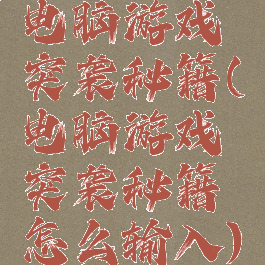 电脑游戏
突袭秘籍(
电脑游戏
突袭秘籍
怎么输入)